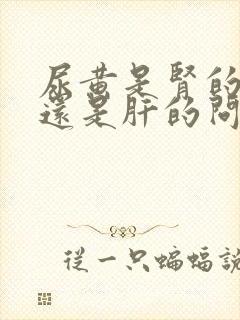 尿黄是腎的
還是肝的問
從一只蝙蝠說